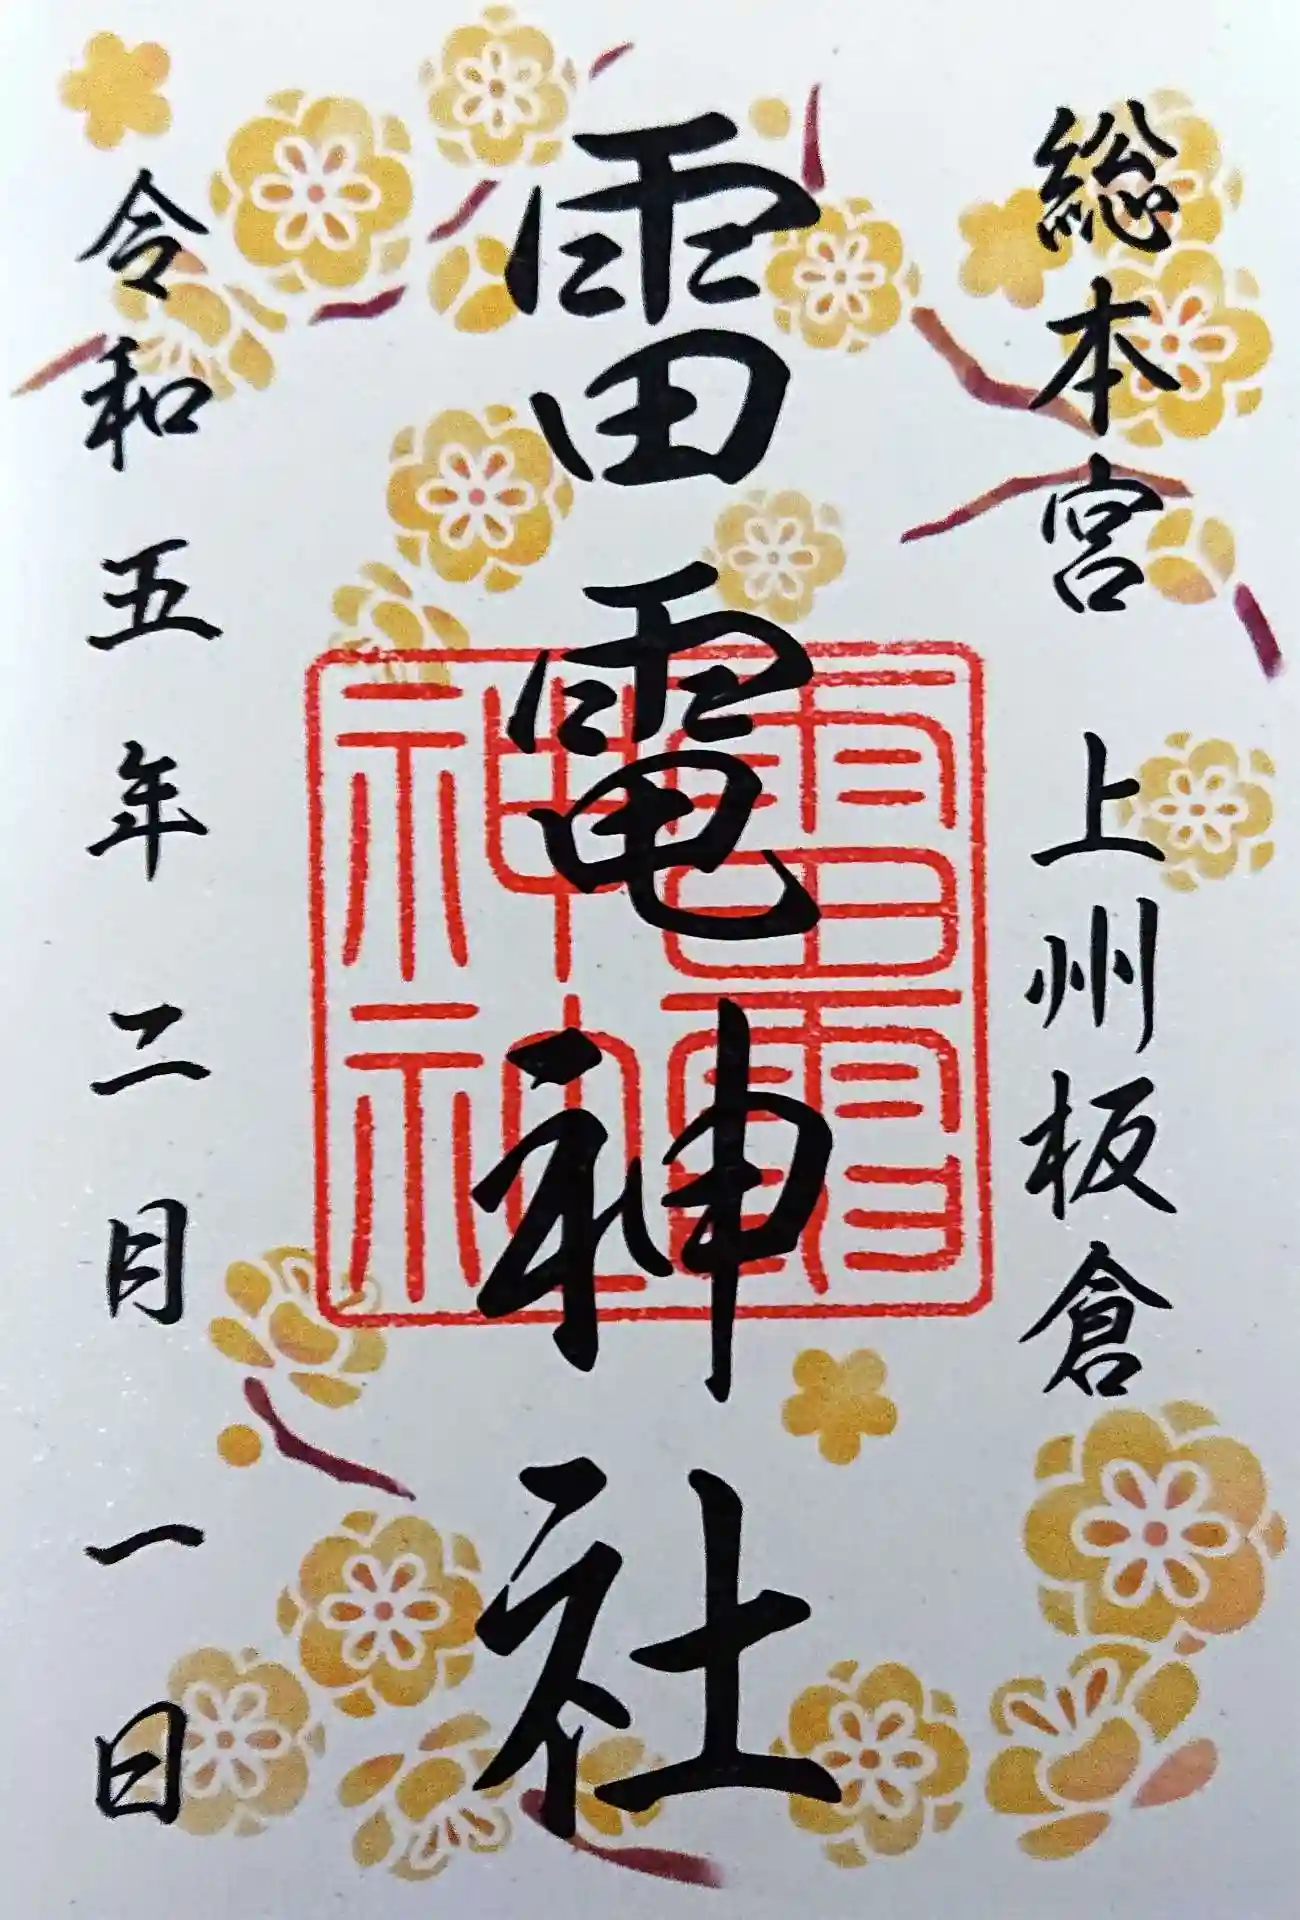 総本宮 上州板倉
雷電神社
令和五年二月一日
雷電
神社